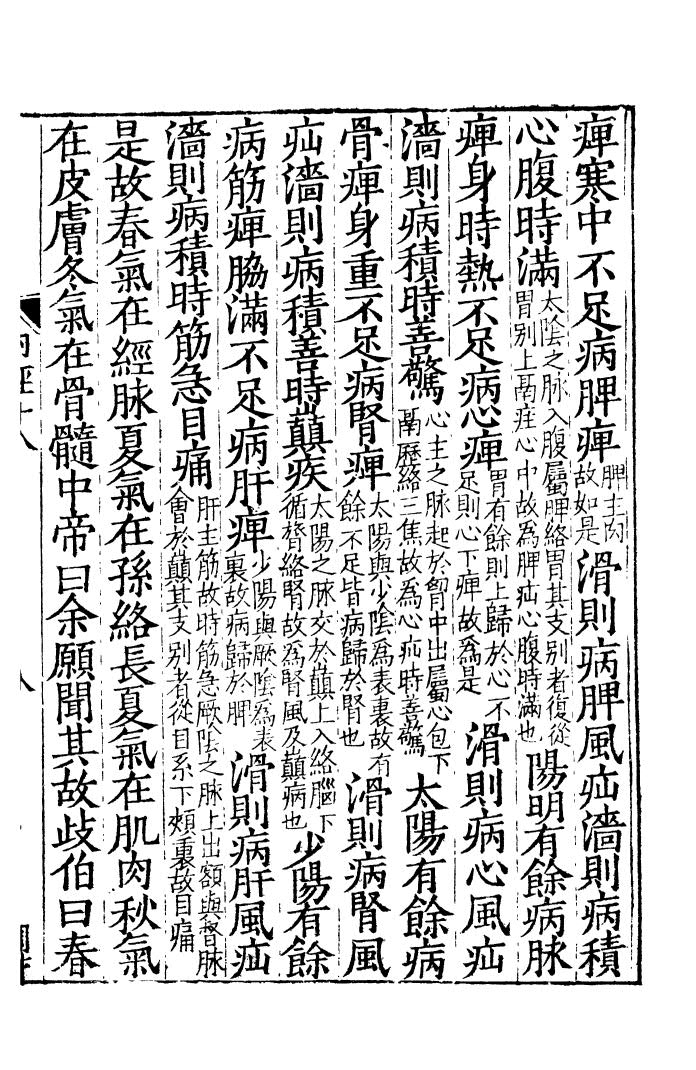 痺寒中不足病脾痺脾主肉故如是滑則病脾風疝濇則病積
心腹時滿太陰之脉入腹屬脾絡胃其支別者復從胃別上鬲注心中故為脾疝心腹時滿也陽明有餘病脉
痺身時熱不足病心痺胃有餘則上歸於心不足則心下痺故為是滑則病心風疝
濇則病積時善驚心主之脉起於胷中出屬心包下鬲歷絡三焦故為心疝時善驚太陽有餘病
骨痺身重不足病腎痺太陽與少陰為表裏故有餘不足皆病歸於腎也滑則病腎風
疝濇則病積善時巔疾太陽之脉交於巔上入絡腦下循膂絡腎故為腎風及巔病也少陽有餘
病筋痺脇滿不足病肝痺少陽與厥陰為表裏故病歸於脾滑則病肝風疝
濇則病積時筋急目痛肝主筋故時筋急厥陰之脉上出額與督脉會於巔其支別者從目系下頰裏故目痛
是故春氣在經脉夏氣在孫絡長夏氣在肌肉秋氣
在皮膚冬氣在骨髓中帝曰余願聞其故歧伯曰春